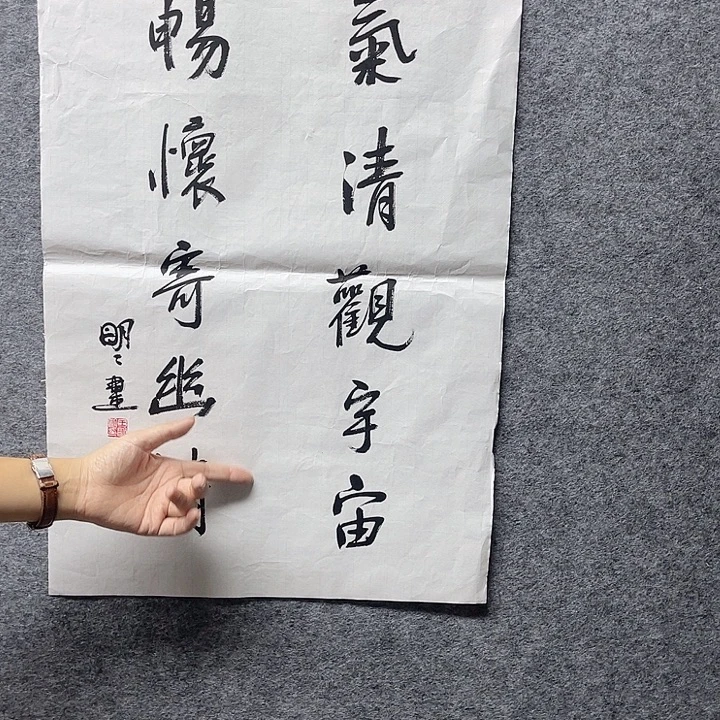 氣清觀宇宙
暢懷寄幽
明〻